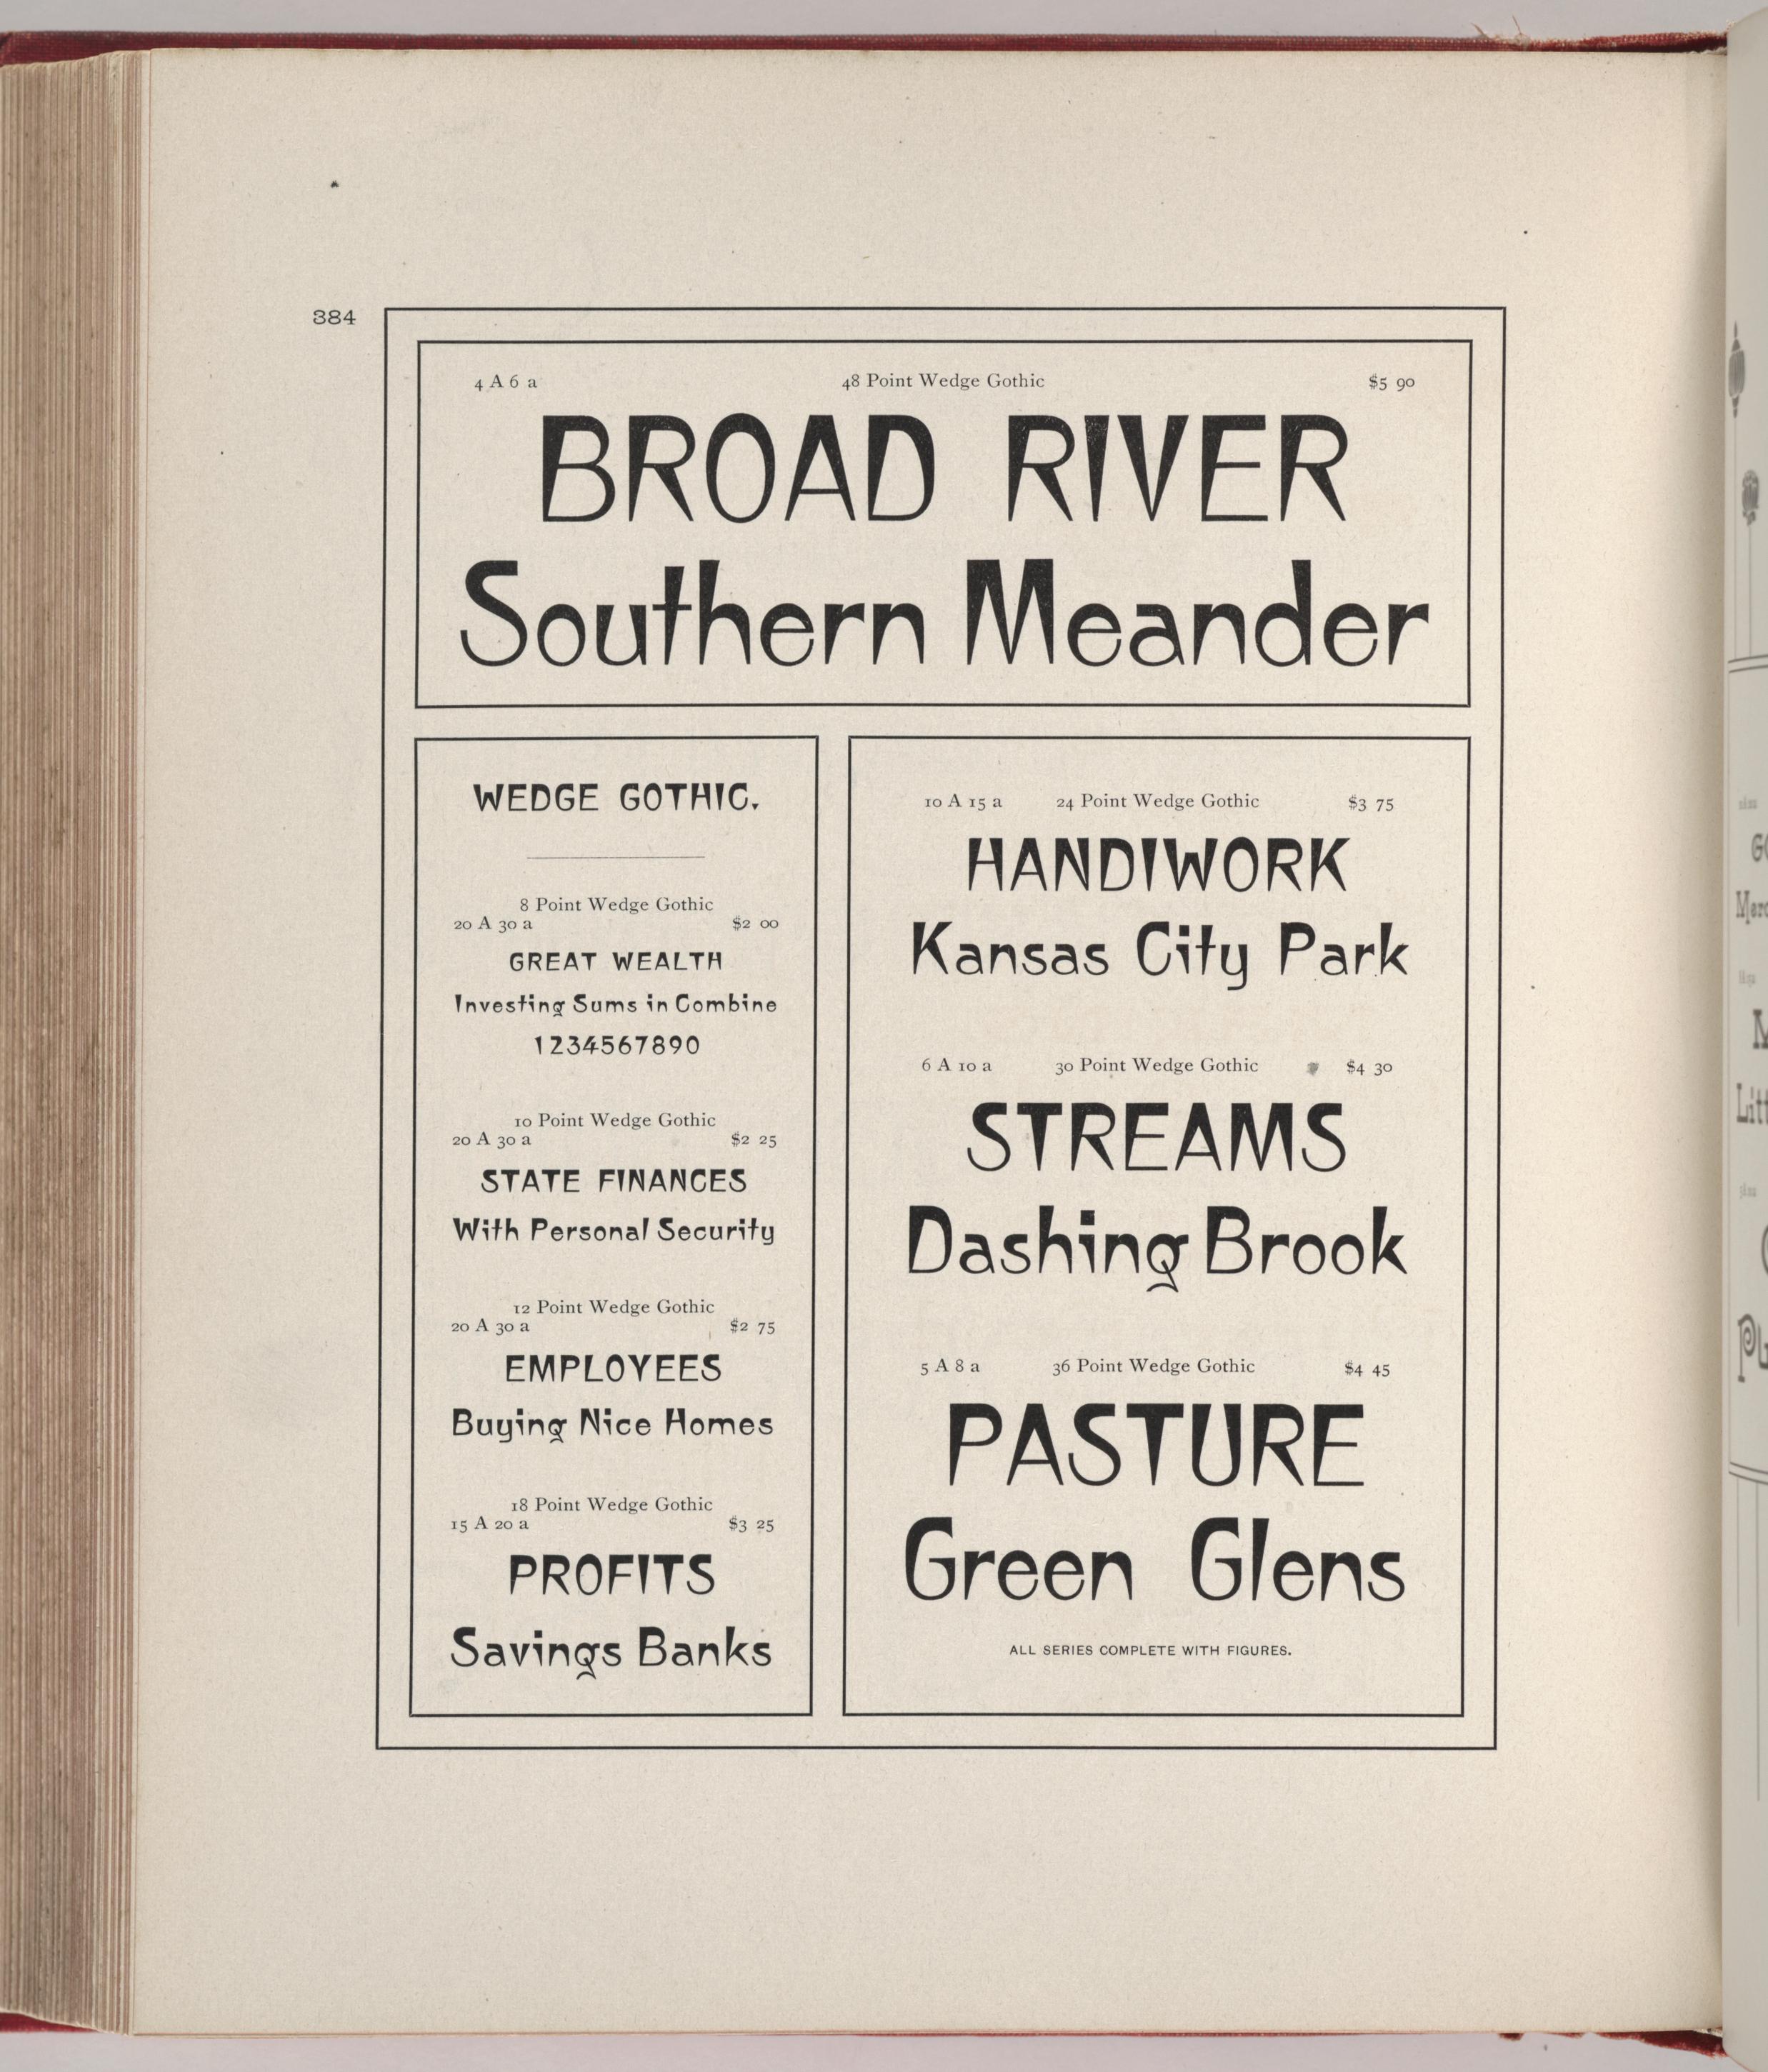 384
4 A 6 a 48 Point Wedge Gothic $5 90
BROAD RIVER
Southern Meander
WEDGE GOTHIC.
8 Point Wedge Gothic
20 A 30 a $2 00
GREAT WEALTH
Investing Sums in Combine
1234567890
10 Point Wedge Gothic
20 A 30 a $2 25
STATE FINANCES
With Personal Security
12 Point Wedge Gothic
20 A 30 a $2 75
EMPLOYEES
Buying Nice Homes
18 Point Wedge Gothic
15 A 20 a $3 25
PROFITS
Savings Banks
10 A 15 a 24 Point Wedge Gothic $3 75
HANDIWORK
Kansas City Park
6 A 10 a 30 Point Wedge Gothic $4 30
STREAMS
Dashing Brook
5 A 8 a 36 Point Wedge Gothic $4 45
PASTURE
Green Glens
ALL SERIES COMPLETE WITH FIGURES.